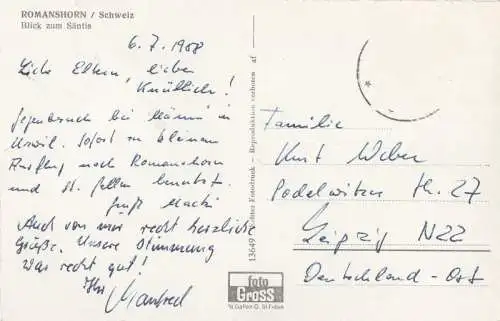 ROMANSHORN / Schweiz
Blick zum Säntis
6.7.1968
Liebe Eltern, lieber
Knüllich!
bei in
Uzwil. Sofort zu kleinem
Ausflug nach Romanshorn
und St. Gallen benutzt.
Grüßt
Auch von mir recht herzliche
Grüße. Unsere Stimmung
war recht gut!
Ihr Manfred
Familie
Kurt Weber
Podelwitzer Str. 27
Leipzig N22
Deutschland-Ost
13649 Echter Fotodruck - Reproduktion verboten af
foto
GROSS
St. Gallen